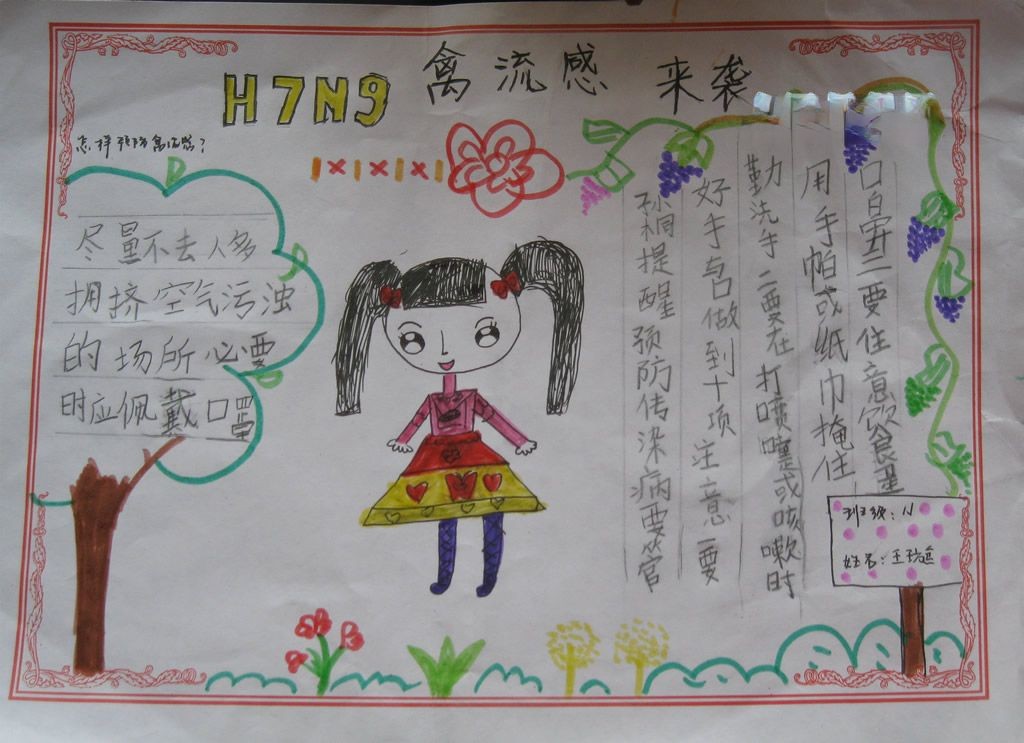 H7N9 禽流感 来袭
怎样预防禽流感?
尽量不去人多
拥挤空气污浊
的场所 必要
时应佩戴口罩
提醒预防传染病要管
好手与口做到十项注意一要
勤洗手二要在打喷嚏或咳嗽时
用手帕或纸巾掩住
口鼻三要住意饮食
班级:
姓名:王